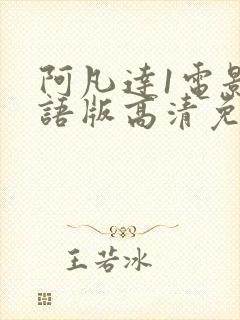 阿凡達1電影
語版高清免
王若冰